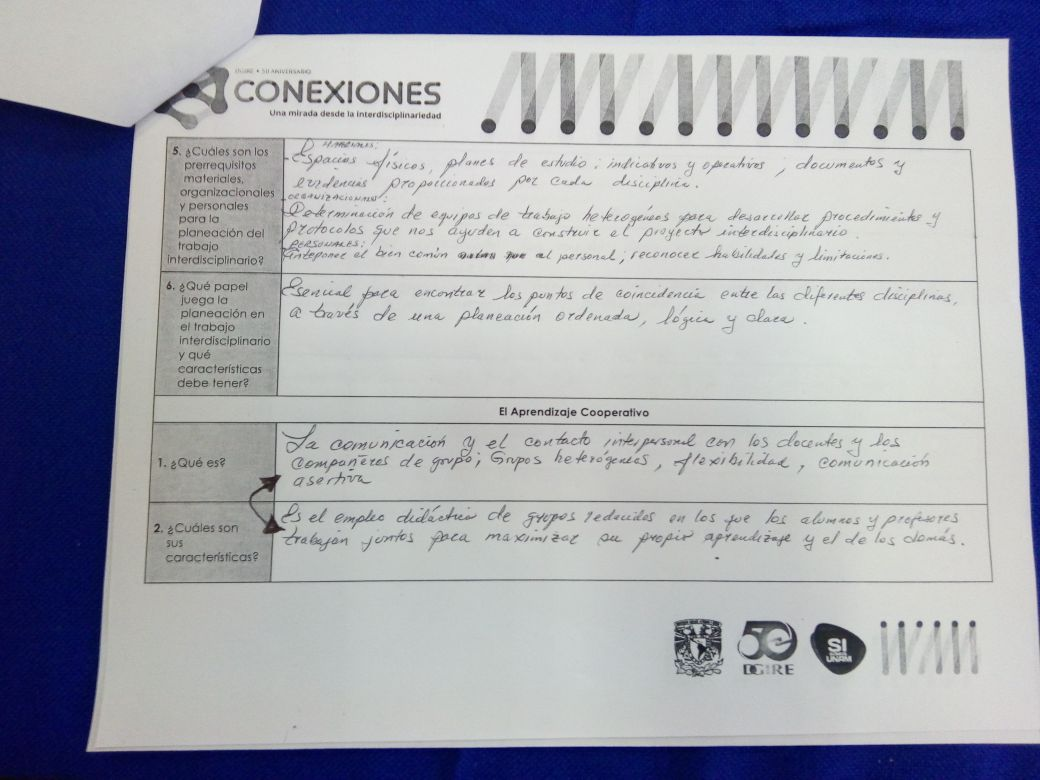 DGIRE • 50 ANIVERSARIO
CONEXIONES
Una mirada desde la interdisciplinariedad
5. ¿Cuáles son los
prerrequisitos
materiales,
organizacionales
y personales
para la
planeación del
trabajo
interdisciplinario?
MATERIALES:
Espacios físicos, planes de estudio: indicativos y operativos, documentos y
evidencias proporcionados por cada disciplina.
ORGANIZACIONALES:
Determinación de equipos de trabajo heterogéneos para desarrollar procedimientos y
protocolos que nos ayuden a construir el proyecto interdisciplinario.
PERSONALES:
Anteponer el bien común al personal; reconocer habilidades y limitaciones.
6. ¿Qué papel
juega la
planeación en
el trabajo
interdisciplinario
y qué
características
debe tener?
Esencial para encontrar los puntos de coincidencia entre las diferentes disciplinas,
a través de una planeación ordenada, lógica y clara.
El Aprendizaje Cooperativo
1. ¿Qué es?
La comunicación y el contacto interpersonal con los docentes y los
compañeros de grupo; Grupos heterógeneos, flexibilidad, comunicación
asertiva
2. ¿Cuáles son
sus
características?
Es el empleo didáctico de grupos reducidos en los que los alumnos y profesores
trabajan juntos para maximizar su propio aprendizaje y el de los demás.
50
DGIRE
SI
UNAM